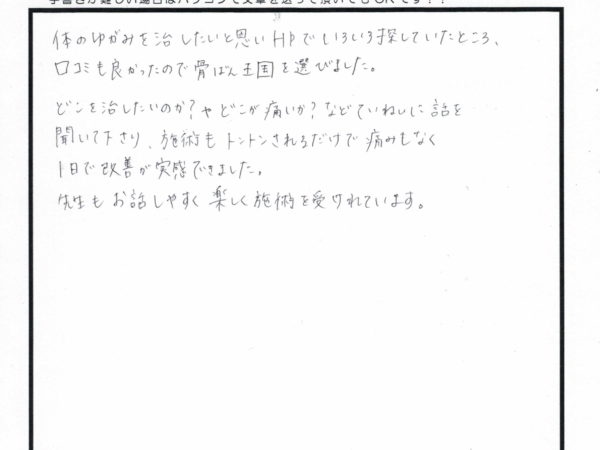 手書きが難しい場合はパソコンで文章を送って頂いてもOKです!!
体のゆがみを治したいと思いHPでいろいろ探していたところ、
口コミも良かったので骨ばん王国を選びました。
どこを治したいのか?やどこが痛いか?などていねいに話を
聞いて下さり、施術もトントンされるだけで痛みもなく
1日で改善が実感できました。
先生もお話しやすく楽しく施術を受けれています。